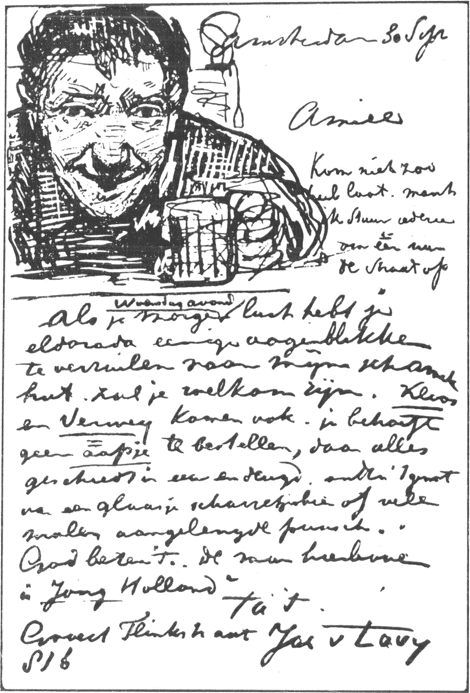 Amsterdam 30 Sept
Amice
Kom niet zoo
heel laat. want
ik stuur iedereen
om één uur
de straat op
Woensdagavond
Als je morgen lust hebt je
eldorado eenige oogenblikken
te verruilen naar mijn schamele
hut. zul je welkom zijn. Kloos
en Verwey komen ook. je behoeft
geen aapje te bestellen, daar alles
geschiedt in eer en deugd. onder 't genot
van een glaasje of vele
malen aangelengde punsch.
God beter 't. De man hierboven
is "Jong Holland"
T à t.
Govert Flinkstraat Jac v Looy